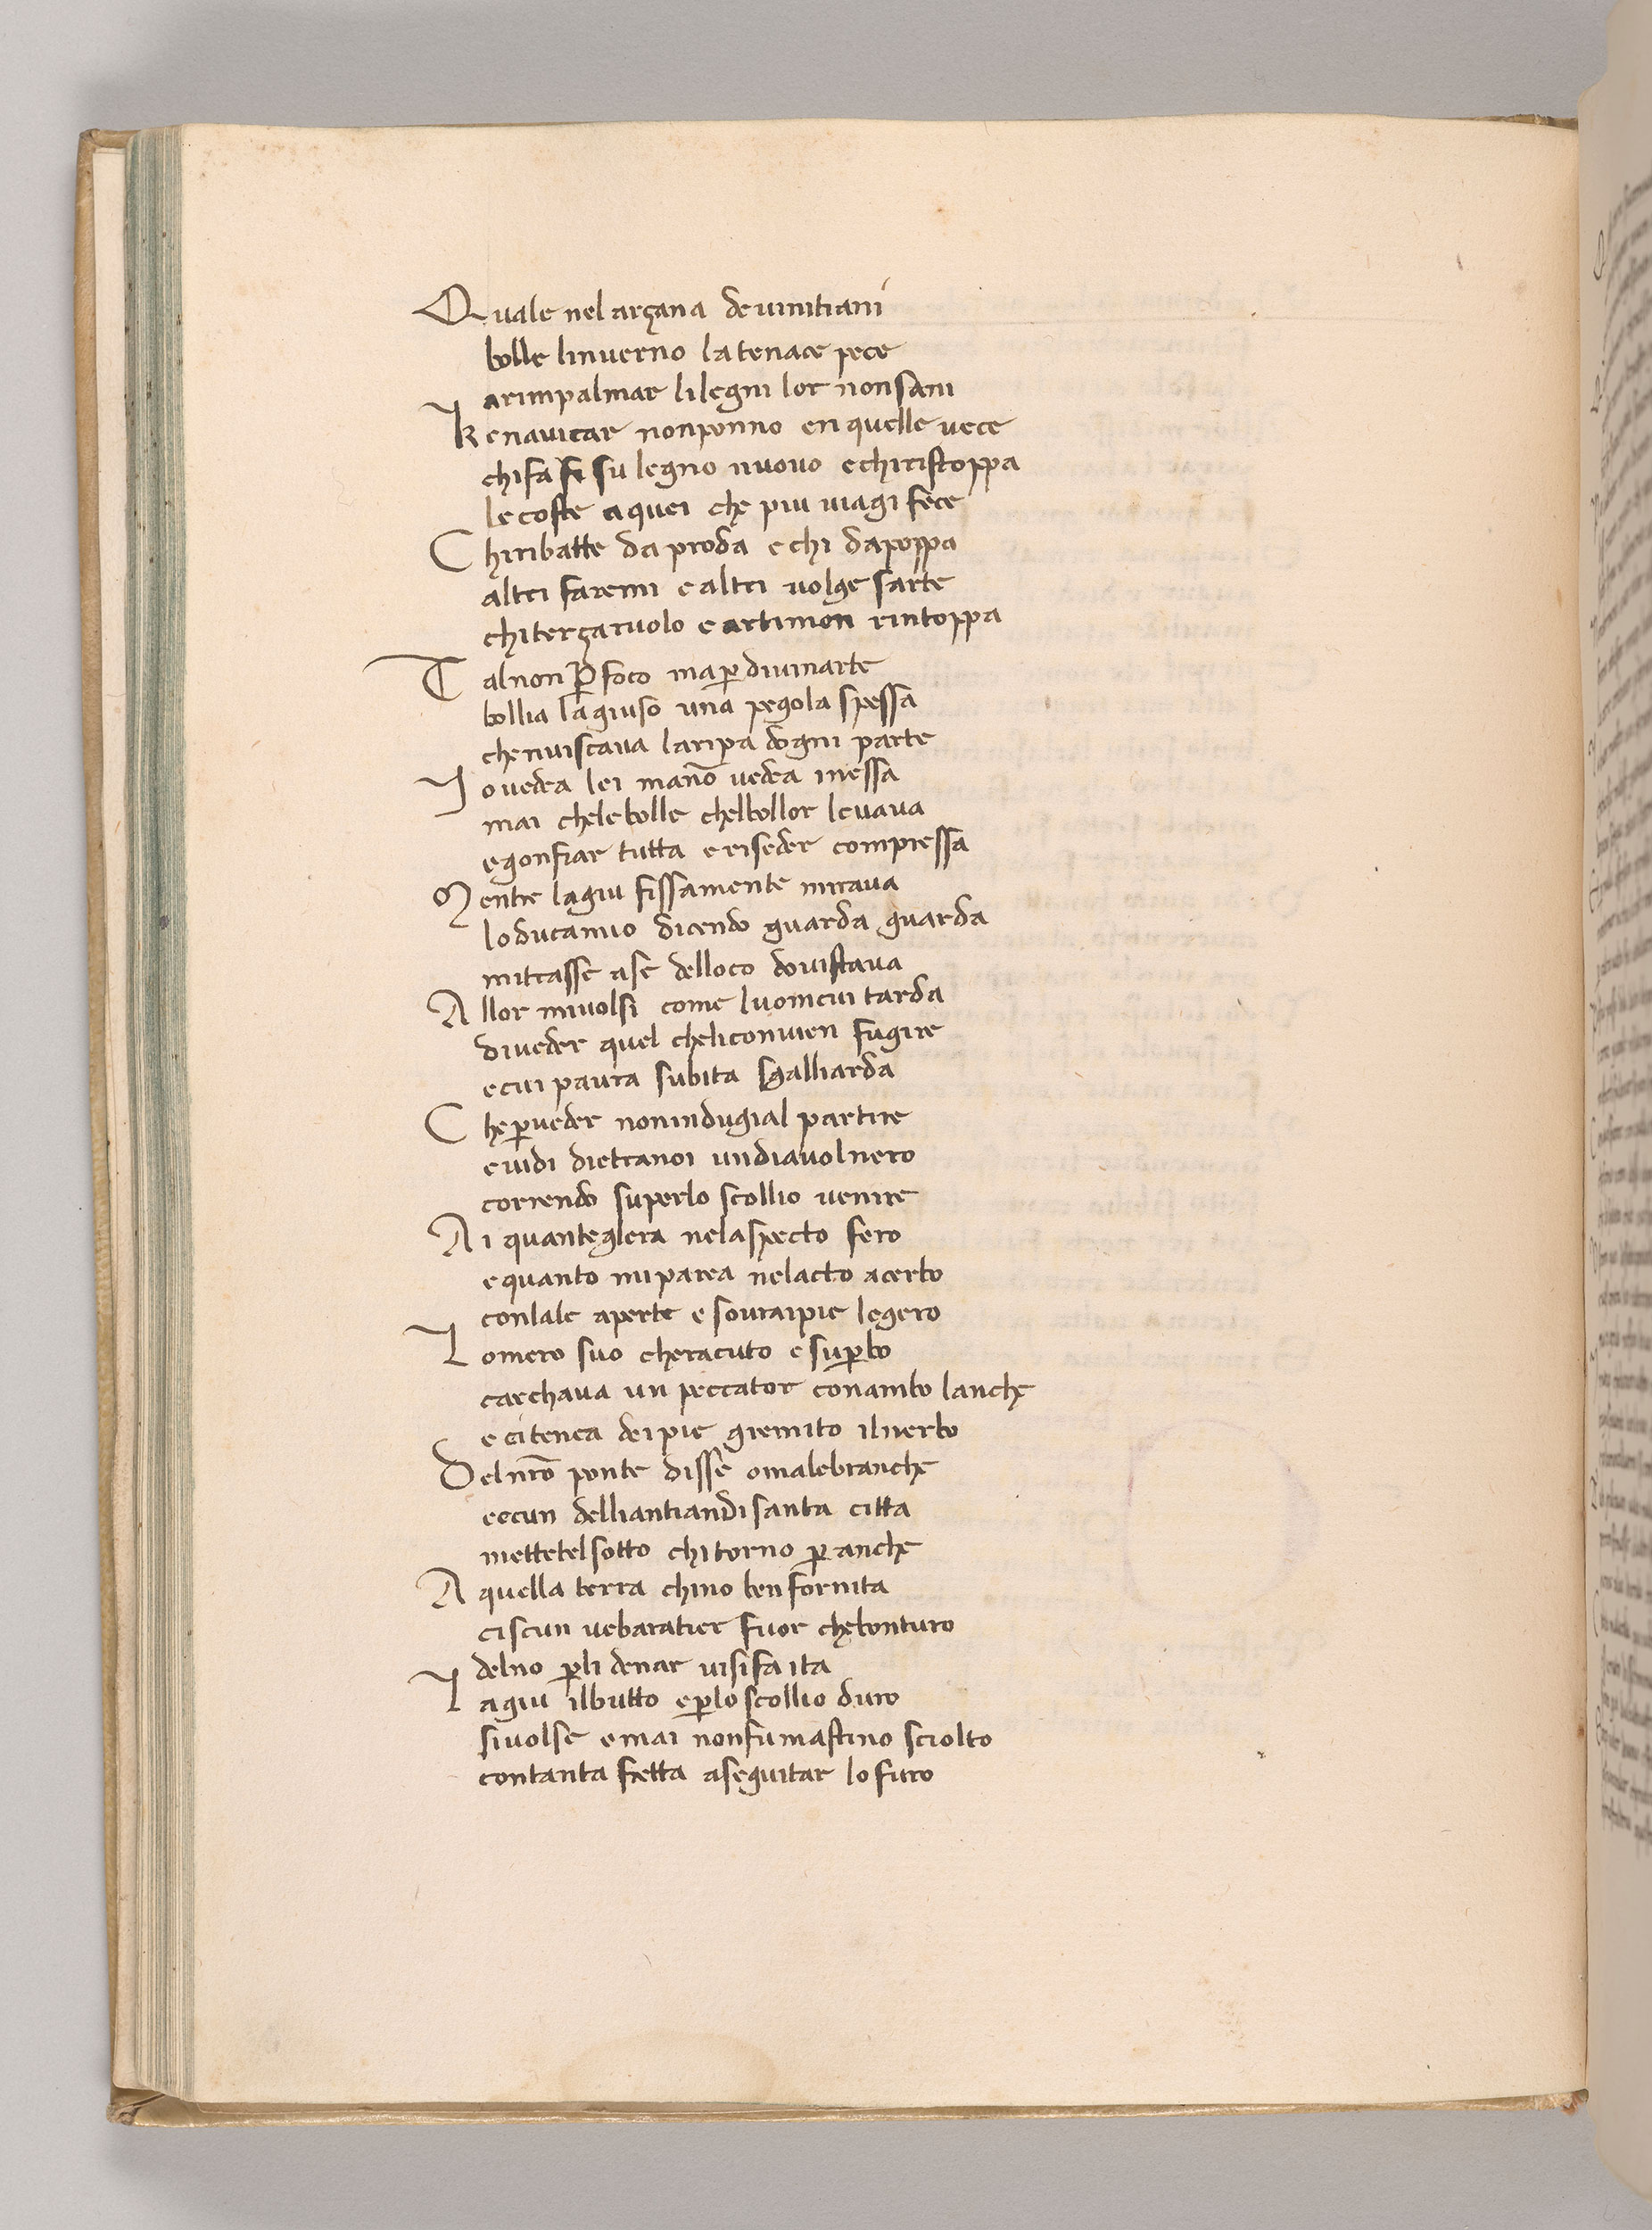 Quale nel arçana de uinitiani
bolle linuerno la tenace pece
arimpalmar li legni lor non sani
Ke nauicar non ponno en quelle uece
chi fa su legno nuouo e chi ristoppa
le coste a quei che piu uiagi fece
Chi ribatte da proda e chi da poppa
altri fa remi e altri uolge sarte
chi terçaruolo e artimon rintoppa
Tal non ꝑ foco ma ꝑ diuinarte
bollia la giuso una pegola spessa
chenuiscaua la ripa dogni parte
Jo uedea lei ma nō uedea in essa
mai che le bolle chel bollor leuaua
e gonfiar tutta e riseder compressa
Mentre la giu fissamente miraua
lo duca mio dicendo guarda guarda
mi trasse a se del loco doui staua
Allor mi uolsi come luom cui tarda
di ueder quel che li conuien fugire
e cui paura subita sgalliarda
Che ꝑ ueder non indugial partire
e uidi dietra noi un diauol nero
correndo super lo scollio uenire
Ai quanteglera nel aspecto fero
e quanto mi parea nelacto acerbo
con lale aperte e soura i pie legero
Lomero suo cheracuto e suꝑbo
carchaua un peccator con ambo lanche
e ei tenea dei pie gremito il nerbo
Del nr̄o ponte disse o malebranche
eccun delli antian di santa citta
mettetel sotto chi torno ꝑ anche
A quella terra chino ben fornita
ciscun ue baratier fuor che bonturo
del no ꝑ li denar uisi fa ita
La giu il butto e ꝑ lo scollio duro
si uolse e mai non fu mastino sciolto
con tanta fretta a seguitar lo furo